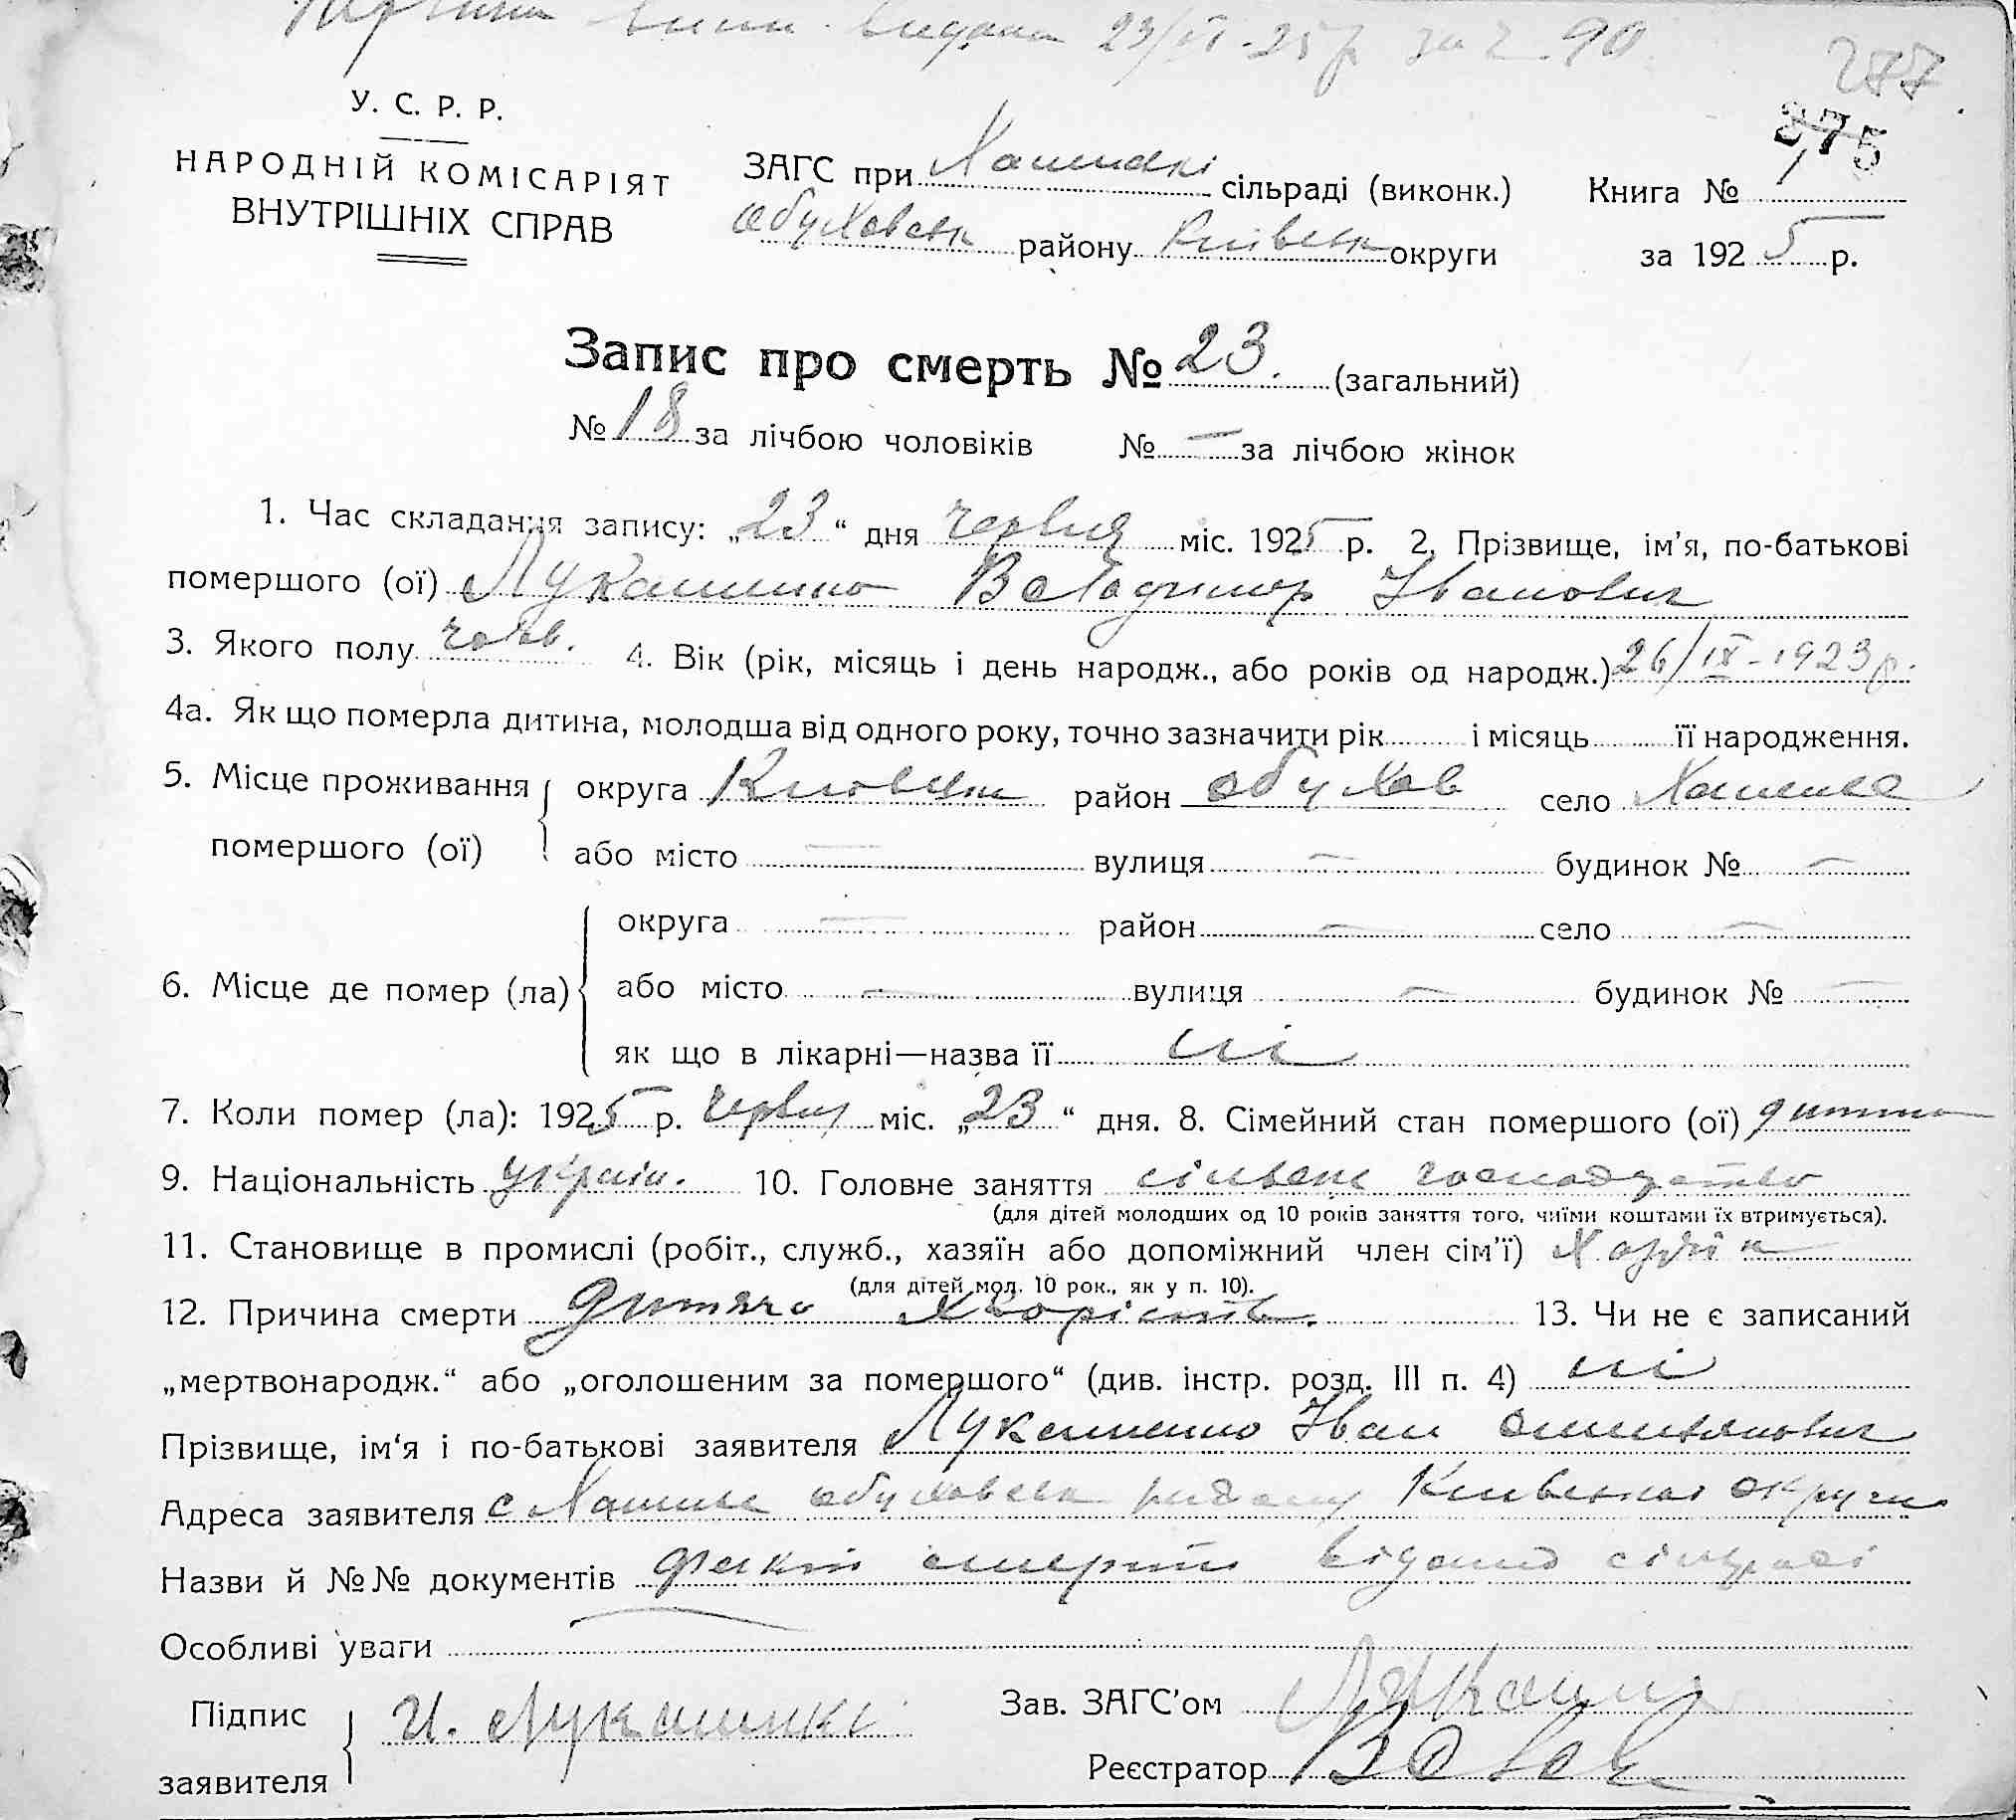 видана 23/VI-25 р за № 90
287
275
У. С. Р. Р.
НАРОДНІЙ КОМІСАРІЯТ
ВНУТРІШНІХ СПРАВ
ЗАГС при сільраді (виконк.) Книга № 1
Обуховськ району Київськ округи за 1925 р.
Запис про смерть № 23. (загальний)
№ 18 за лічбою чоловіків № — за лічбою жінок
1. Час складання запису: „23“ дня червня міс. 1925 р. 2. Прізвище, ім’я, по-батькові
помершого (ої) Лукашенко Володимир Іванович
3. Якого полу чолов. 4. Вік (рік, місяць і день народж., або років од народж.) 26/IX-1923 р.
4а. Як що померла дитина, молодша від одного року, точно зазначити рік і місяць її народження.
5. Місце проживання округа район Обухов село
помершого (ої) або місто — вулиця — будинок № —
округа — район — село —
6. Місце де помер (ла) або місто — вулиця — будинок № —
як що в лікарні—назва її ні
7. Коли помер (ла): 1925 р. червня міс. „23“ дня. 8. Сімейний стан помершого (ої) дитина
9. Національність україн. 10. Головне заняття сільське господарство
(для дітей молодших од 10 років заняття того, чиїми коштами їх втримується).
11. Становище в промислі (робіт., служб., хазяїн або допоміжний член сім’ї) Хазяїн
(для дітей мол. 10 рок., як у п. 10).
12. Причина смерти дитяча хворість. 13. Чи не є записаний
„мертвонародж.“ або „оголошеним за помершого“ (див. інстр. розд. III п. 4) ні
Прізвище, ім‘я і по-батькові заявителя Лукашенко Іван
Адреса заявителя с району округи
Назви й №№ документів смерти сільраді
Особливі уваги —
Підпис Зав. ЗАГС’ом
И.
Реєстратор
заявителя